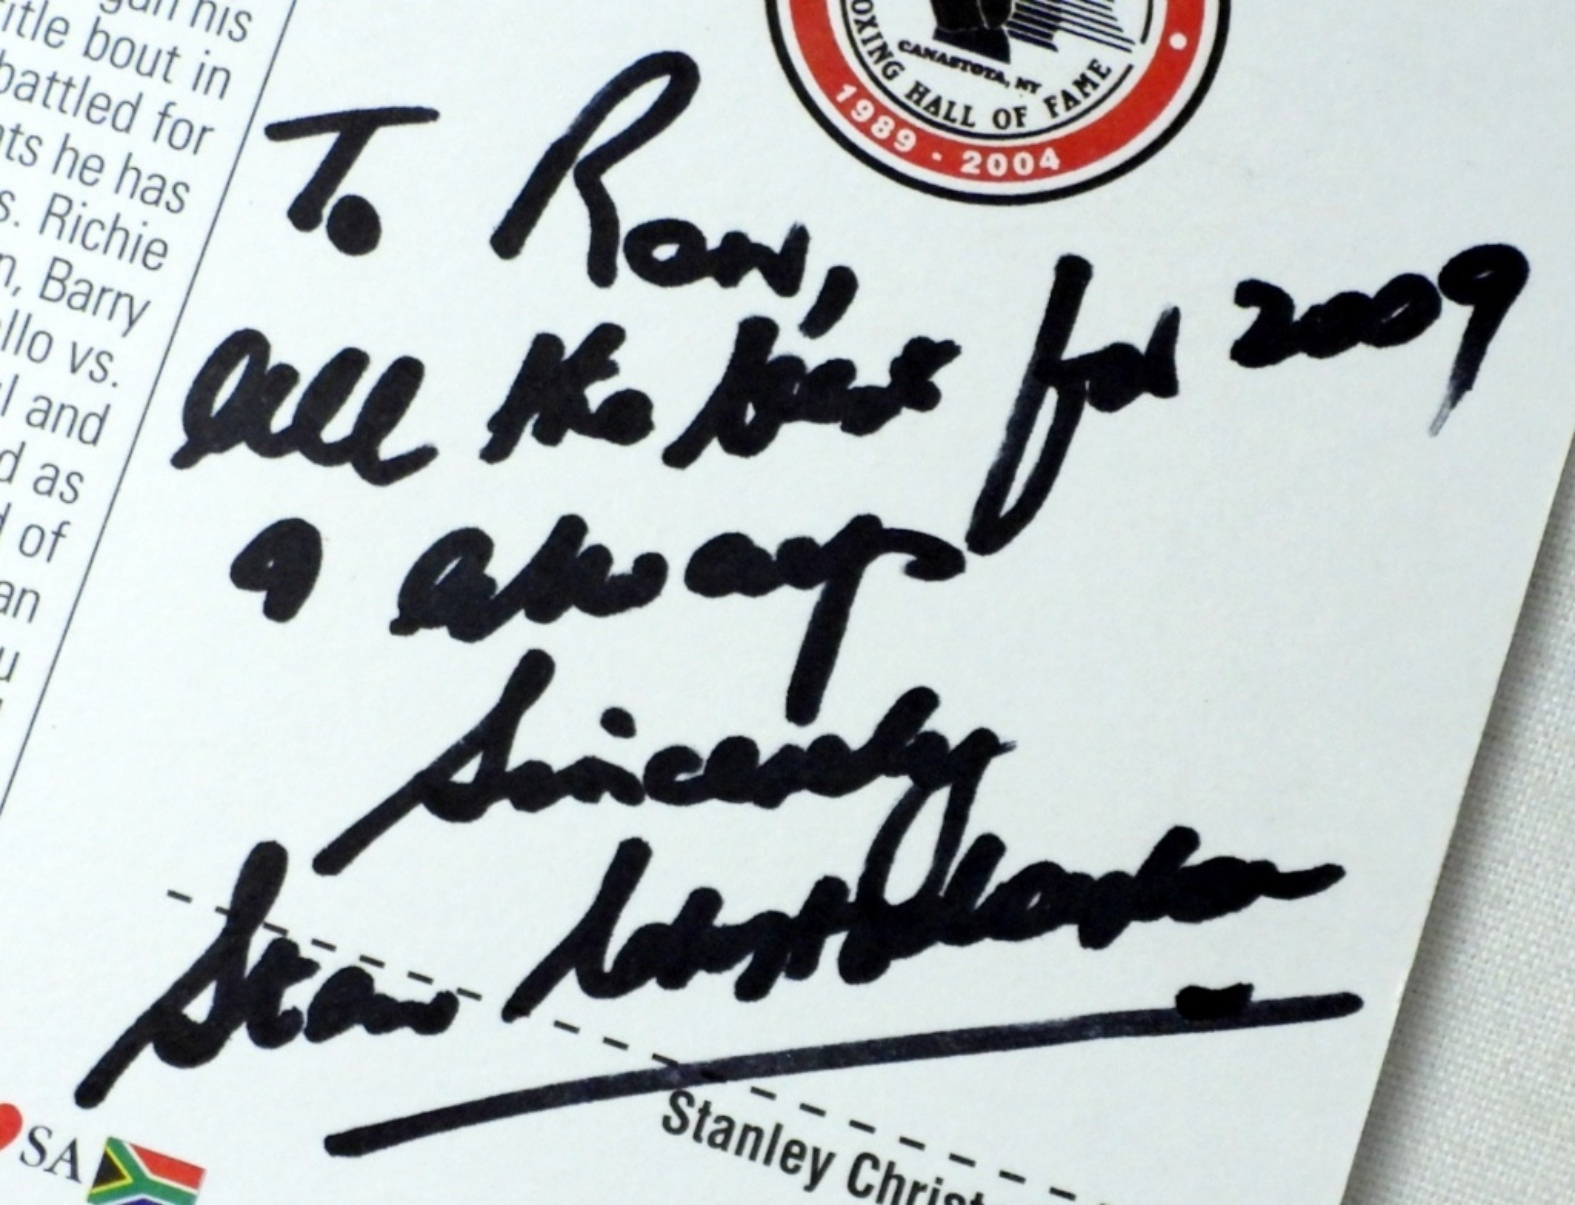 gan his
itle bout in
battled for
nts he has
s. Richie
n, Barry
llo vs.
l and
d as
d of
an
u
CANASTOTA, NY
OXING HALL OF FAME
1989 • 2004
To Ron,
All the best for 2009
& always
Sincerely
Stan Christodoulou
SA
Stanley Christ